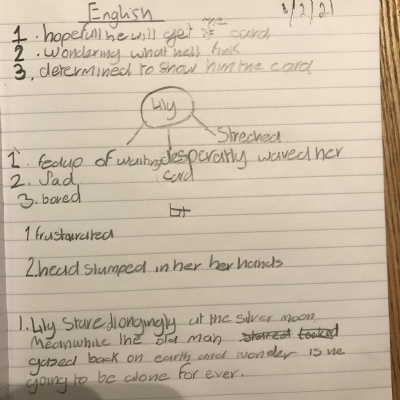 English
3/2/21
1. hopefull he will get card
2. wondering what he'll
3. determined to show him the card
Lily
Streched
1. fedup of waiting desperatly waved her
2. Sad card
3. bored
1 frustaurated
2. head slumped in her her hands
1. Lily stared longingly at the silver moon
Meanwhile the old man stared looked
gazed back on earth and wonder is he
going to be alone for ever.